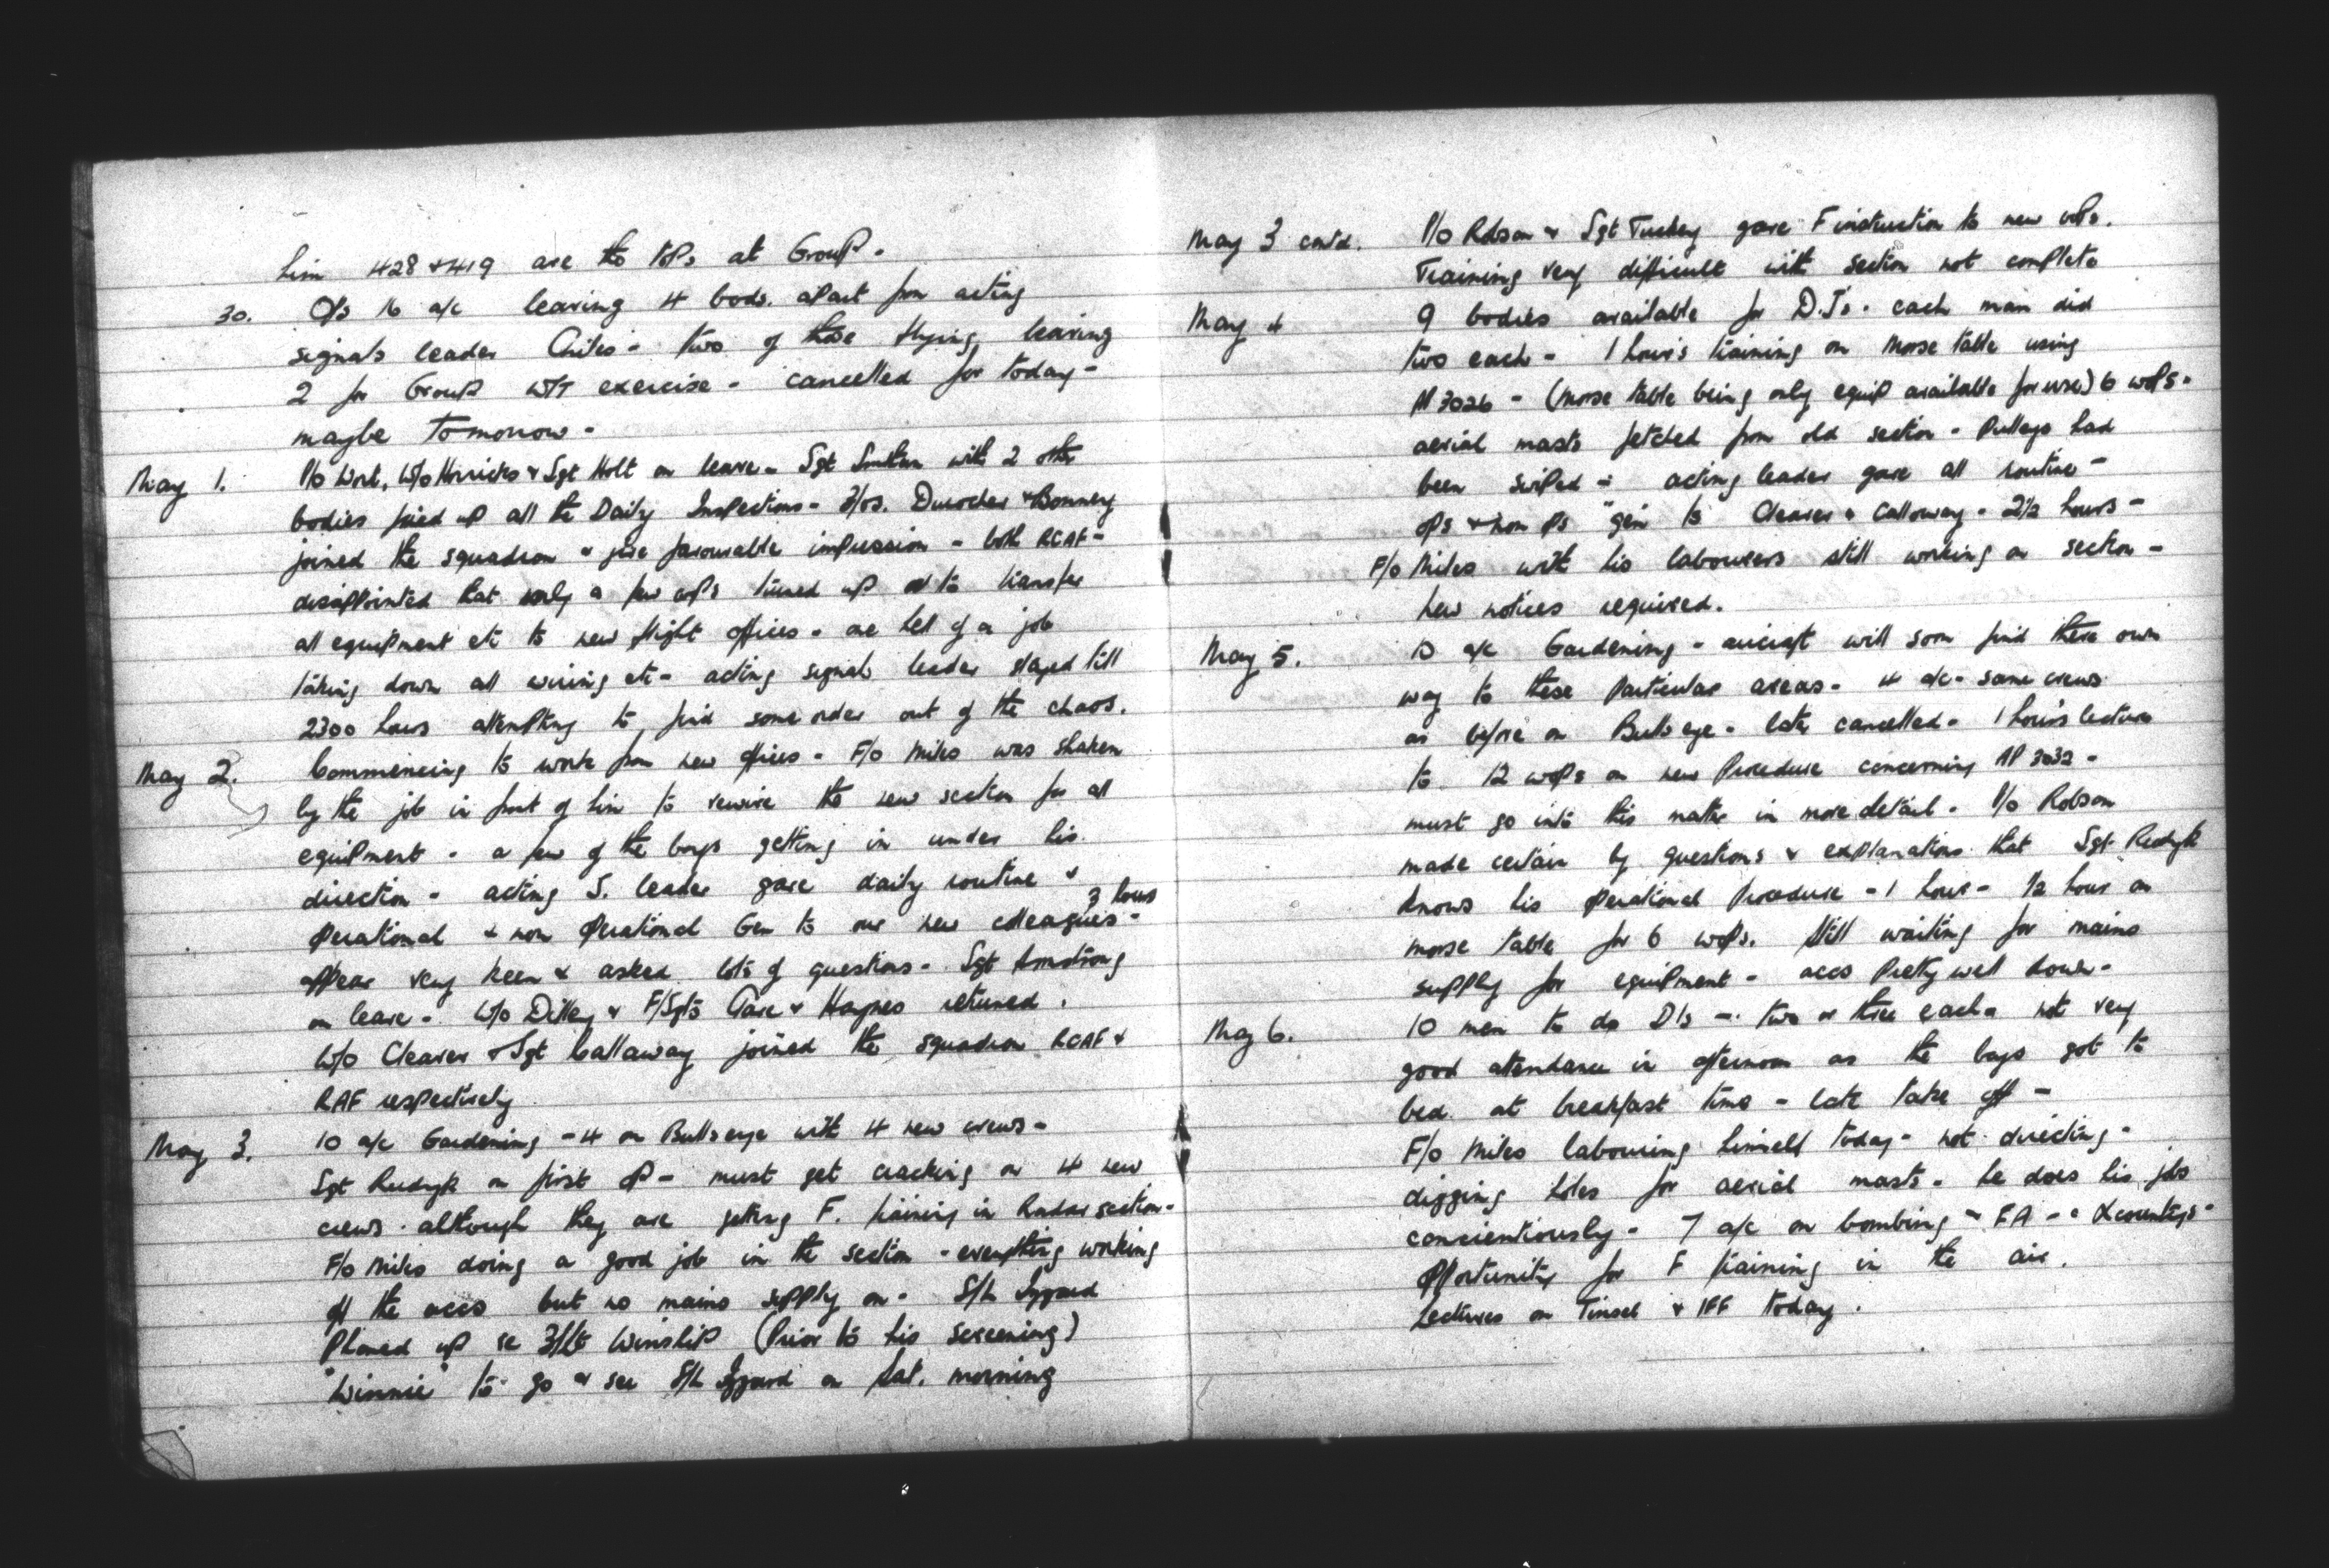 him 428 & 419 are the tops at Group.
30. Ops 16 a/c leaving 4 bods. apart from acting
signals leader Chiles - two of those flying, leaving
2 for Group W/T exercise - cancelled for today -
maybe tomorrow -
May 1. P/O Work, W/O Horricks & Sgt Holt on leave - Sgt with 2 other
bodies fixed up all the Daily Inspections - F/Os. Durocher & Bonney
joined the squadron & give favourable impression - both RCAF -
disappointed that only a few wops turned up to transfer
all equipment etc to new flight offices - one hell of a job
taking down all wiring etc - acting signals leader stayed till
2300 hours attempting to find some order out of the chaos.
May 2. Commencing to work from new offices - F/O Miles was shaken
by the job in front of him to rewire the new section for all
equipment - a few of the boys getting in under his
direction - acting S. leader gave daily routine &
3 hours
operational & non operational Gen to our new colleagues -
appear very keen & asked lots of questions - Sgt Armstrong
on leave - W/O Dilley & F/Sgts Gare & Haynes returned.
W/O Cleaver & Sgt Callaway joined the squadron RCAF &
RAF respectively
May 3. 10 a/c Gardening - 4 on Bullseye with 4 new crews -
Sgt Rudyk on first op - must get cracking on 4 new
crews. although they are getting F. training in Radar section -
F/O Miles doing a good job in the section - everything working
off the accs but no mains supply on - S/L Iggard
phoned up re Winship (Prior to his screening)
"Winnie" to go & see S/L Iggard on Sat. morning
May 3 cont'd. P/O Robson & Sgt Tuckey gave F instruction to new wops.
Training very difficult with section not complete
May 4 9 bodies available for D.I's. each man did
two each - 1 hour's training on Morse table using
AP 3026 - (morse table being only equip available for use) 6 wops -
aerial masts fetched from old section - Pulleys had
been swiped - acting leader gave all routine -
ops & non ops "gen to Cleaver & Calloway - 2½ hours -
F/O Miles with his labourers still working on section -
new notices required.
May 5. 10 a/c Gardening - aircraft will soon find there own
way to these particular areas - 4 a/c - same crews
as before on Bullseye - later cancelled - 1 hour's lecture
to 12 wops on new Procedure concerning AP 3032 -
must go into this matter in more detail - P/O Robson
made certain by questions & explanations that Sgt Rudyk
knows his operational procedure - 1 hour - ½ hour on
morse table for 6 wops. Still waiting for mains
supply for equipment - accs pretty well down -
May 6. 10 men to do DIs - two or three each - not very
good attendance in afternoon as the boys got to
bed at breakfast time - late take off -
F/O Miles labouring himself today - not directing -
digging holes for aerial masts - he does his jobs
concientiously - 7 a/c on bombing - FA - X countrys -
opportunity for F training in the air.
Lectures on Tinsel & IFF today.